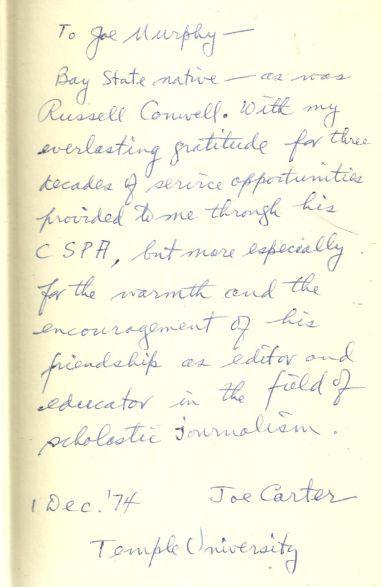 To Joe Murphy —
Bay State native — as was
Russell Conwell. With my
everlasting gratitude for three
decades of service opportunities
provided to me through his
CSPA, but more especially
for the warmth and the
encouragement of his
friendship as editor and
educator in the field of
scholastic journalism.
1 Dec. '74 Joe Carter
Temple University